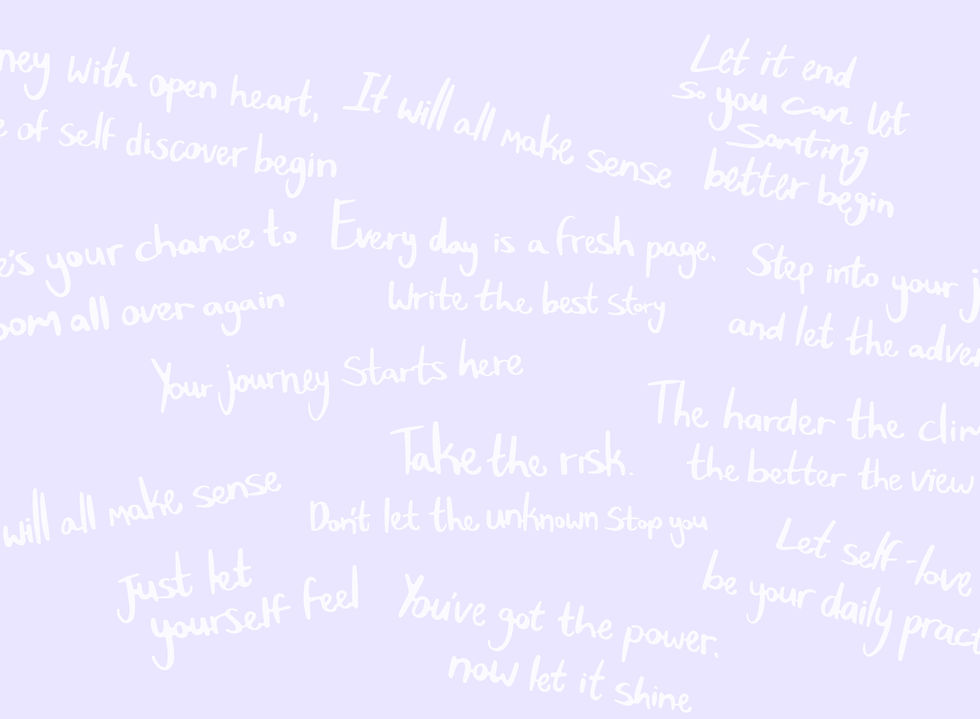 ney with open heart,
e of self discover begin
It will all make sense
Let it end
so you can let
Somting
better begin
e's your chance to
oom all over again
Every day is a fresh page.
Write the best story
Step into your j
and let the adven
Your journey Starts here
The harder the clim
the better the view
Take the risk.
Don't let the unknown Stop you
will all make sense
Let self-love
be your daily pract
Just let
yourself feel
You've got the power.
now let it shine